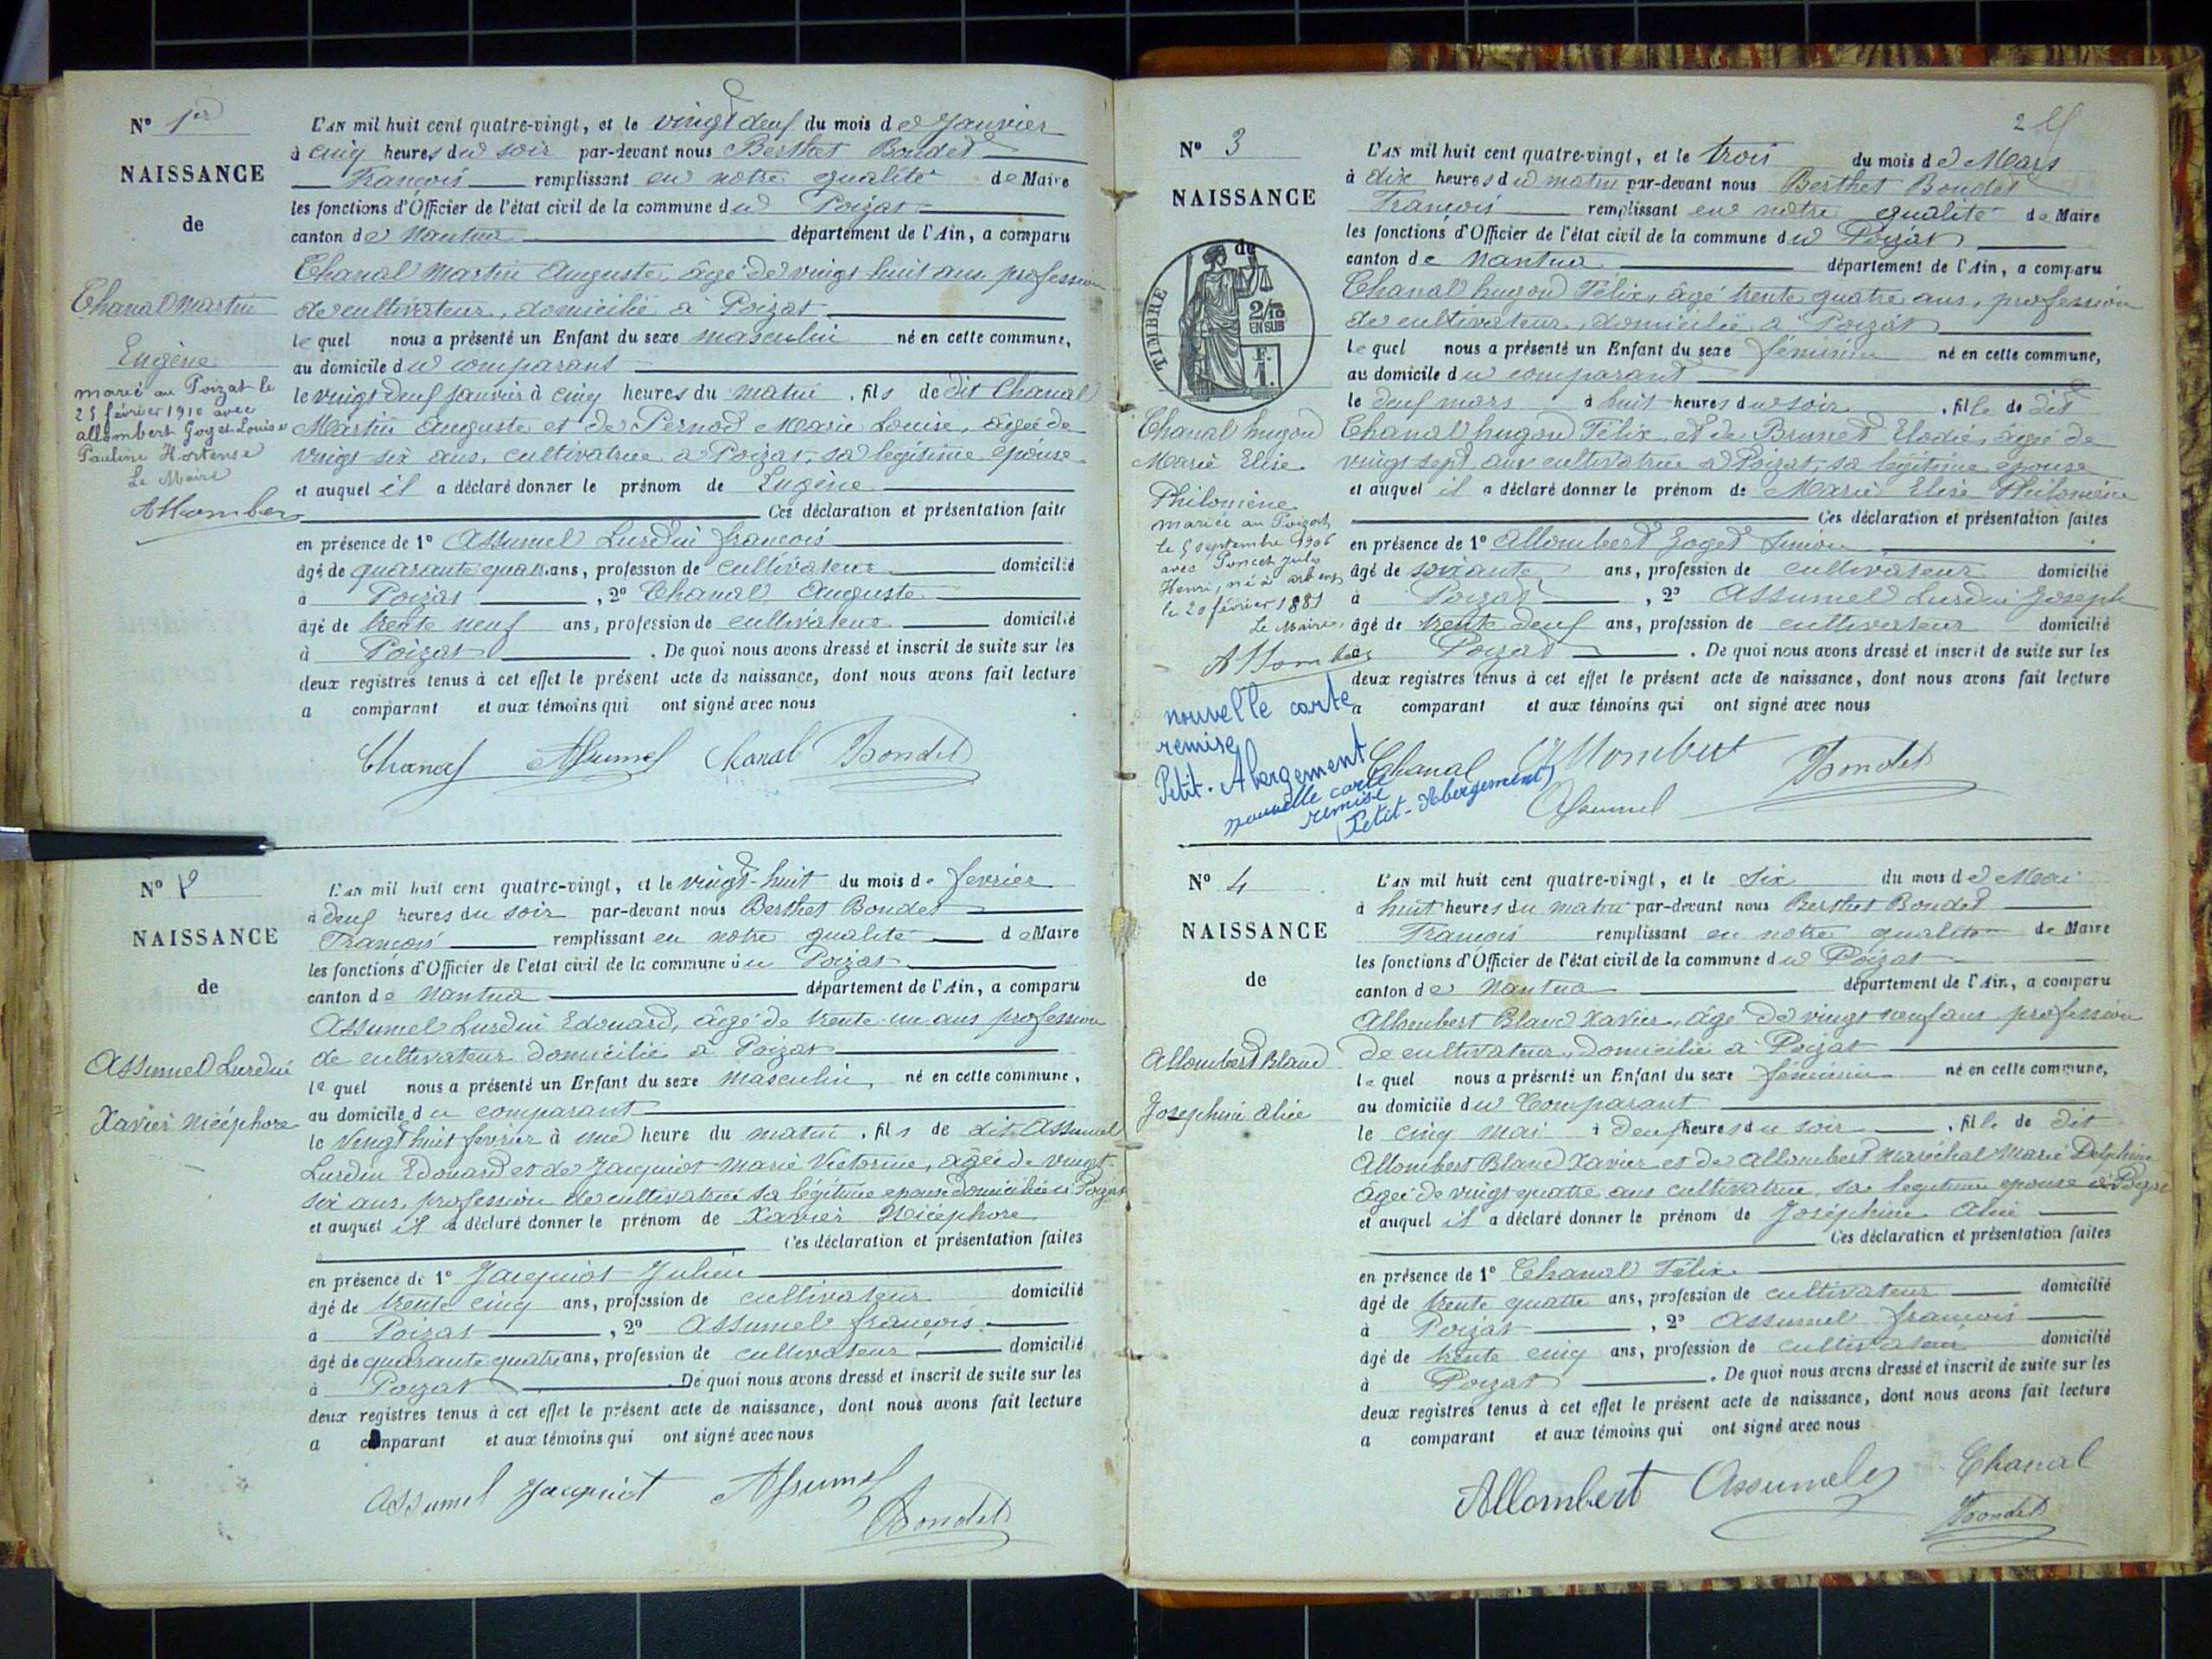 Nº 1er
NAISSANCE
de
Chanal Martin
Eugène
marié au Poizat le
25 février 1910 avec
allombert Goget Louise
Pauline Hortense
Le Maire
Allombert
L'AN mil huit cent quatre-vingt, et le vingt deux du mois de Janvier
à cinq heures du soir par-devant nous Berthet Bondet
François remplissant en notre qualité de Maire
les fonctions d'Officier de l'état civil de la commune du Poizat
canton de Nantua département de l'Ain, a comparu
Chanal Martin Auguste, âgé de vingt huit ans, profession
de cultivateur, domicilié à Poizat
lequel nous a présenté un Enfant du sexe masculin né en cette commune,
au domicile du comparant
le vingt deux Janvier à cinq heures du matin, fils de dit Chanal
Martin Auguste et de Pernod Marie Louise, âgée de
vingt six ans, cultivatrice à Poizat, sa légitime épouse
et auquel il a déclaré donner le prénom de Eugène
Ces déclaration et présentation faite
en présence de 1º Assumel Lurdin françois
âgé de quarante quatre ans, profession de cultivateur domicilié
à Poizat, 2º Chanal Auguste
âgé de trente neuf ans, profession de cultivateur domicilié
à Poizat. De quoi nous avons dressé et inscrit de suite sur les
deux registres tenus à cet effet le présent acte de naissance, dont nous avons fait lecture
a comparant et aux témoins qui ont signé avec nous
Chanal Assumel Chanal Bondet
Nº 2
NAISSANCE
de
Assumel Lurdin
Xavier Nicéphore
L'AN mil huit cent quatre-vingt, et le vingt-huit du mois de fevrier
à deux heures du soir par-devant nous Berthet Bondet
François remplissant en notre qualité de Maire
les fonctions d'Officier de l'état civil de la commune du Poizat
canton de Nantua département de l'Ain, a comparu
Assumel Lurdin Edouard, âgé de trente un ans profession
de cultivateur domicilié à Poizat
lequel nous a présenté un Enfant du sexe masculin, né en cette commune,
au domicile du comparant
le Vingt huit fevrier à une heure du matin, fils de dit Assumel
Lurdin Edouard et de Jacquiot Marie Victorine, âgée de vingt-
six ans, profession de cultivatrice sa légitime epouse domiciliée à Poizat
et auquel il a déclaré donner le prénom de Xavier Nicéphore
Ces déclaration et présentation faites
en présence de 1º Jacquiot Julien
âgé de trente cinq ans, profession de cultivateur domicilié
à Poizat, 2º Assumel françois
âgé de quarante quatre ans, profession de cultivateur domicilié
à Poizat. De quoi nous avons dressé et inscrit de suite sur les
deux registres tenus à cet effet le présent acte de naissance, dont nous avons fait lecture
a comparant et aux témoins qui ont signé avec nous
Assumel Jacquiot Assumel
Bondet
2
Nº 3
NAISSANCE
de
TIMBRE
2/10
EN SUS
F.
1.
Chanal hugon
Marie Elise
Philomène
mariée au Poizat
le 5 septembre 1906
avec Poncet Jules
Henri, né à
le 20 février 1881
Le Maire,
Allombert
nouvelle carte
remise
Petit-Abergement
nouvelle carte
remise
(Petit-Abergement)
L'AN mil huit cent quatre-vingt, et le trois du mois de Mars
à dix heures du matin par-devant nous Berthet Bondet
François remplissant en notre qualité de Maire
les fonctions d'Officier de l'état civil de la commune du Poizat
canton de Nantua département de l'Ain, a comparu
Chanal hugon Félix, âgé trente quatre ans, profession
de cultivateur, domicilié à Poizat
lequel nous a présenté un Enfant du sexe féminin né en cette commune,
au domicile du comparant
le deux mars à huit heures du soir, fille de dit
Chanal hugon Félix, et de Brunet Elodie, âgée de
vingt sept ans cultivatrice à Poizat, sa légitime epouse
et auquel il a déclaré donner le prénom de Marie Elise Philomène
Ces déclaration et présentation faites
en présence de 1º Allombert Goget Simon
âgé de soixante ans, profession de cultivateur domicilié
à Poizat, 2º Assumel Lurdin Joseph
âgé de trente deux ans, profession de cultivateur domicilié
à Poizat. De quoi nous avons dressé et inscrit de suite sur les
deux registres tenus à cet effet le présent acte de naissance, dont nous avons fait lecture
a comparant et aux témoins qui ont signé avec nous
Chanal Allombert Bondet
Assumel
Nº 4
NAISSANCE
de
Allombert Blanc
Josephine Alice
L'AN mil huit cent quatre-vingt, et le six du mois de Mai
à huit heures du matin par-devant nous Berthet Bondet
François remplissant en notre qualité de Maire
les fonctions d'Officier de l'état civil de la commune du Poizat
canton de Nantua département de l'Ain, a comparu
Allombert Blanc Xavier, âgé de vingt neuf ans, profession
de cultivateur, domicilié à Poizat
lequel nous a présenté un Enfant du sexe féminin né en cette commune,
au domicile du Comparant
le cinq mai à deux heures du soir, fille de dit
Allombert Blanc Xavier et de Allombert Maréchal Marie Delphine
âgée de vingt quatre ans cultivatrice, sa legitime epouse à Poizat
et auquel il a déclaré donner le prénom de Joséphine Alice
Ces déclaration et présentation faites
en présence de 1º Chanal Félix
âgé de trente quatre ans, profession de cultivateur domicilié
à Poizat, 2º Assumel françois
âgé de trente cinq ans, profession de cultivateur domicilié
à Poizat. De quoi nous avons dressé et inscrit de suite sur les
deux registres tenus à cet effet le présent acte de naissance, dont nous avons fait lecture
a comparant et aux témoins qui ont signé avec nous
Allombert Assumel Chanal
Bondet